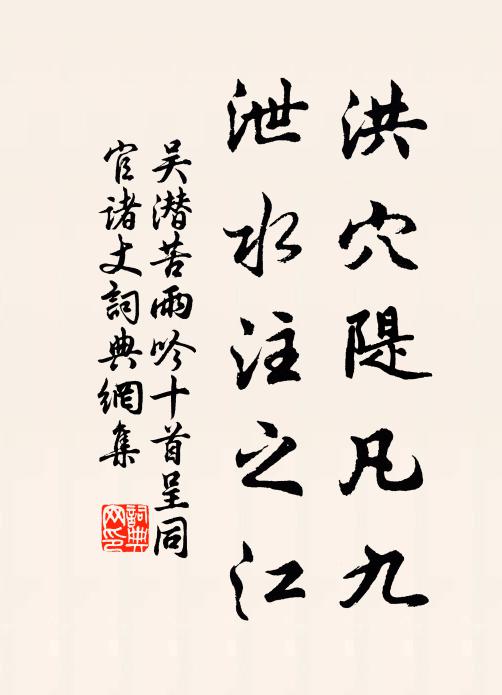 洪穴隄凡九
泄水注之江
吴潜苦雨吟十首呈同
官诸丈詞典網集
詞典
网印